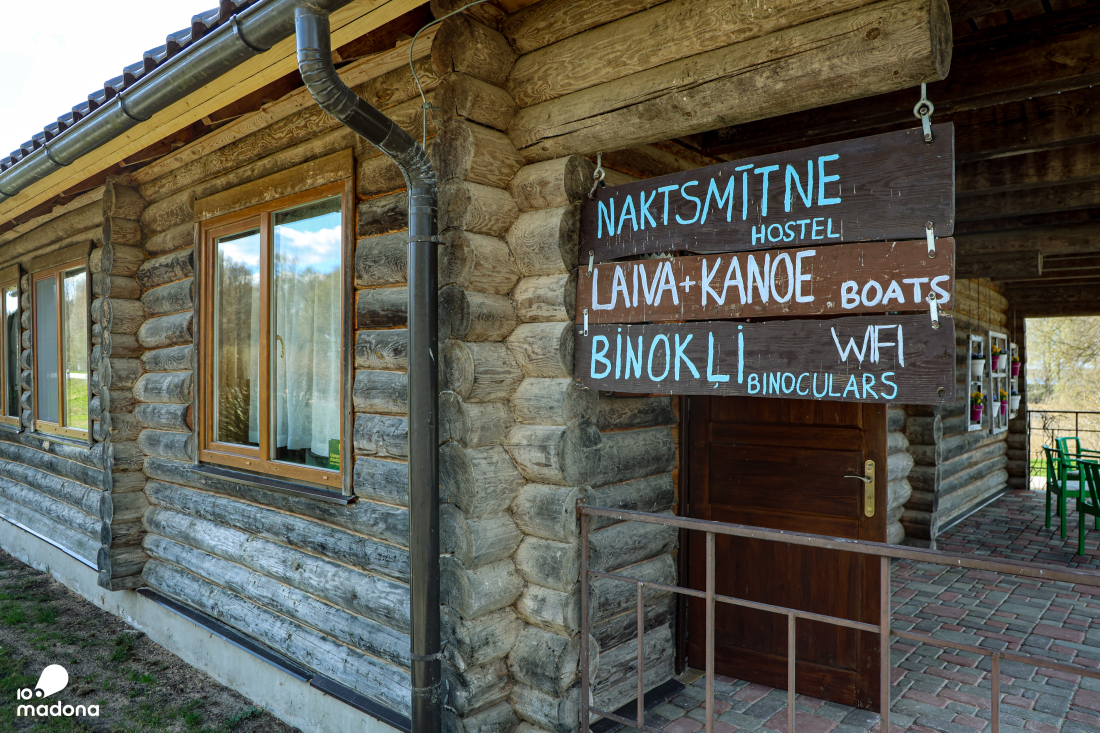 NAKTSMĪTNE
HOSTEL
LAIVA+KANOE BOATS
BINOKĻi WIFI
BINOCULARS
100
madona